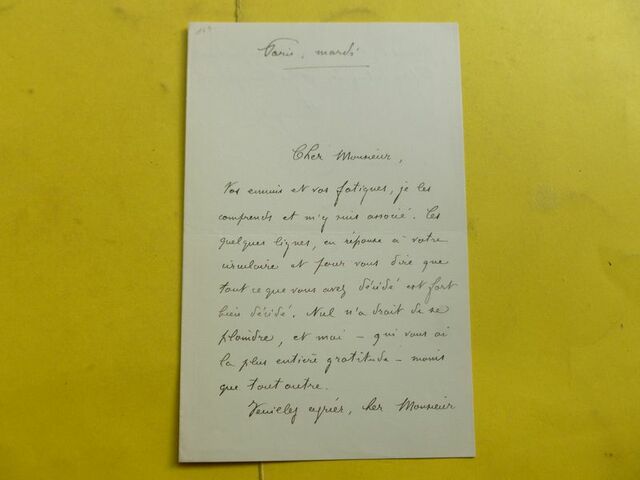 Paris, mardi
Cher Monsieur,
Vos ennuis et vos fatigues, je les
comprends et m'y suis associé. Ces
quelques lignes, en réponse à votre
circulaire et pour vous dire que
tout ce que vous avez décidé est fort
bien décidé. Nul n'a droit de se
plaindre, et moi – qui vous ai
la plus entière gratitude – moins
que tout autre.
Veuillez agréer, cher Monsieur